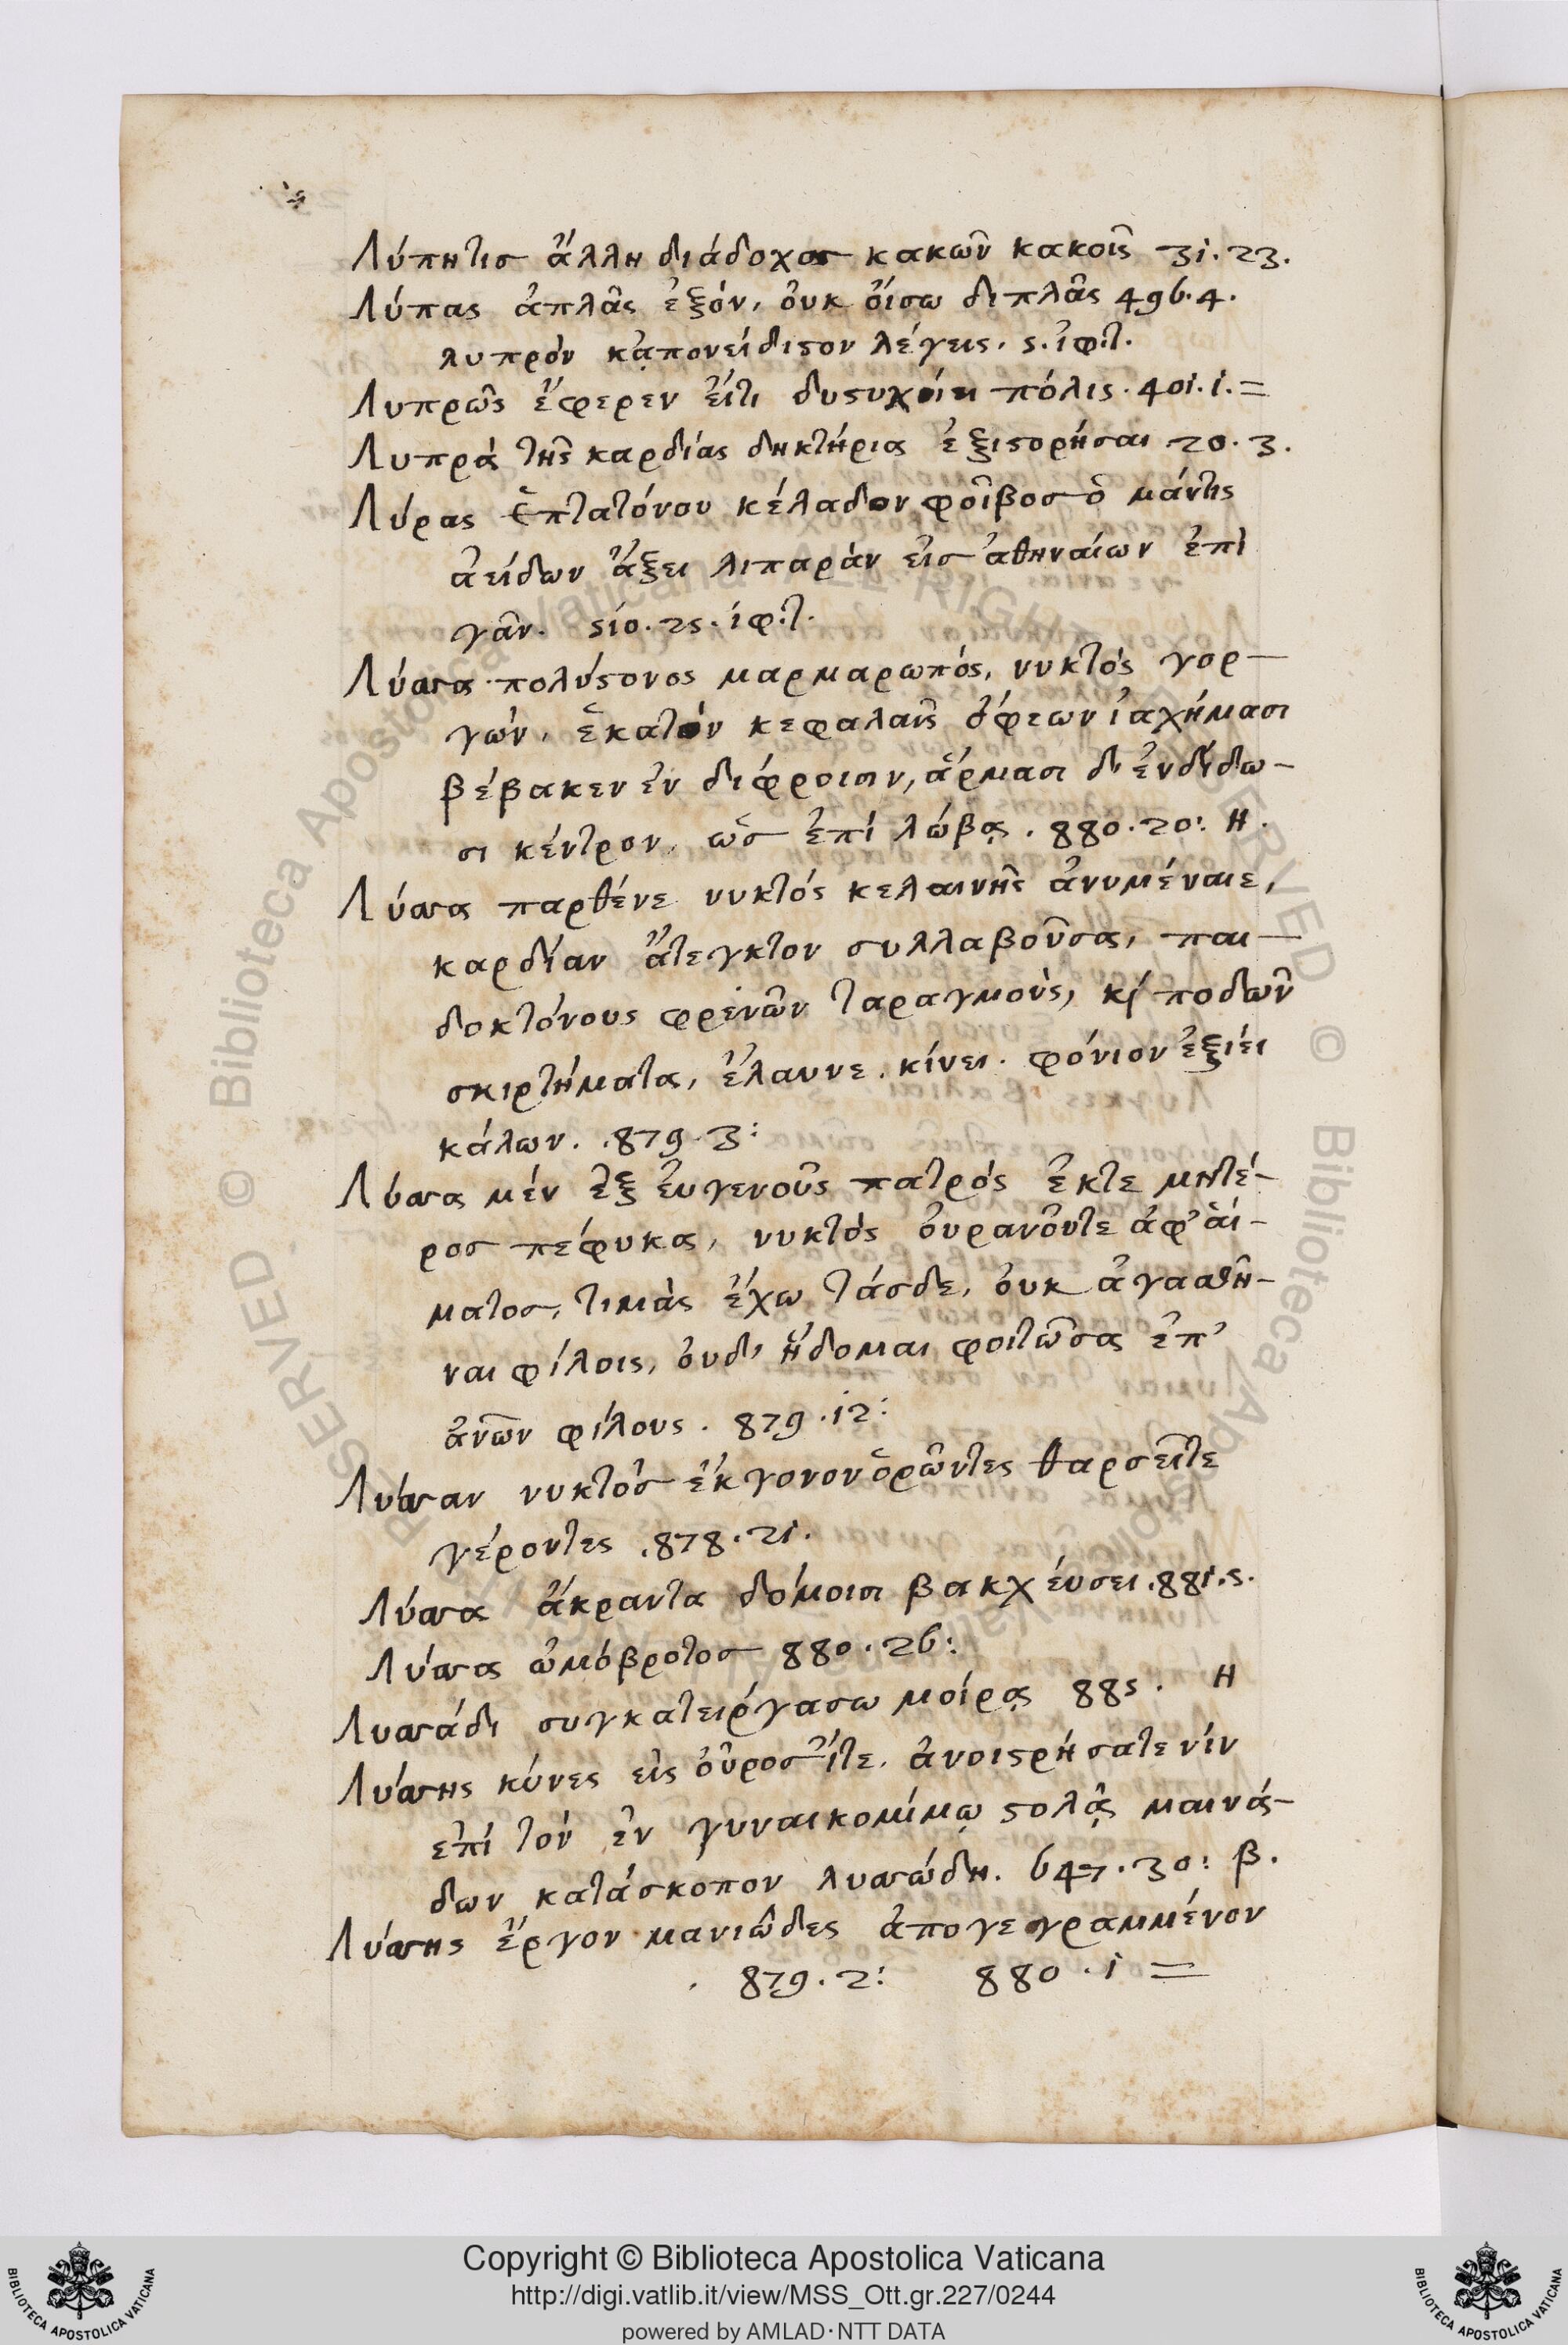 Λύπητις ἄλλη διάδοχος κακῶν κακοῖς 31.23.
Λύπας ἁπλᾶς ἐξόν, οὐκ οἴσω διπλᾶς 496.4.
λυπρὸν κᾀπονείδιϛον λέγεις. 5. ἰφ.τ.
Λυπρῶς ἔφερεν εἴτι δυςυχοίη πόλις. 401.1.=
Λυπρὰ τῆς καρδίας δηκτήρια ἐξιϛορήσαι 20.3.
Λύρας ἑπτατόνου κέλαδον φοῖβος ὁ μάντις
ἀείδων ἄξει λιπαρὰν εἰς ἀθηναίων ἐπὶ
γᾶν. 510.25. ἰφ.τ.
Λύσσα πολύϛονος μαρμαρωπός, νυκτὸς γορ-
γών, ἑκατὸν κεφαλαῖς ὄφεων ἰαχήμασι
βέβακεν ἐν δίφροισιν, ἅρμασι δ' ἐνδίδω-
σι κέντρον, ὡς ἐπὶ λώβᾳ. 880.20: Η.
Λύσσα παρθένε νυκτὸς κελαινῆς ἀνυμέναιε,
καρδίαν ἄτεγκτον συλλαβοῦσα, παι-
δοκτόνους φρενῶν ταραγμοὺς, κὶ ποδῶν
σκιρτήματα, ἔλαυνε. κίνει. φόνιον ἐξίει
κάλων. .879.3:
Λύσσα μὲν ἐξ εὐγενοῦς πατρὸς ἔκτε μητέ-
ρος πέφυκα, νυκτὸς οὐρανοῦτε ἀφ' αἵ-
ματος, τιμὰς ἔχω τάσδε, οὐκ ἀγασθῆ-
ναι φίλοις, οὐδ' ἥδομαι φοιτῶσα ἐπ'
ἀνῶν φίλους. 879.12:
Λύσσαν νυκτὸς ἔκγονον ὁρῶντες θαρσεῖτε
γέροντες .878.21.
Λύσσα ἄκραντα δόμοισι βακχεύσει .881.5.
Λύσσα ὠμόβροτος 880.26:
Λυσσάδι συγκατειργάσω μοίρᾳ 885. Η
Λύσσης κύνες εἰς οὖρος ἴτε. ἀνοιϛρήσατε νιν
ἐπὶ τὸν ἐν γυναικομίμῳ ϛολᾷ μαινά-
δων κατάσκοπον λυσσώδη. 647.30: β.
Λύσσης ἔργον μανιῶδες ἀπογεγραμμένον
. 879.2: 880.1 =
Copyright © Biblioteca Apostolica Vaticana
http://digi.vatlib.it/view/MSS_Ott.gr.227/0244
powered by AMLAD·NTT DATA